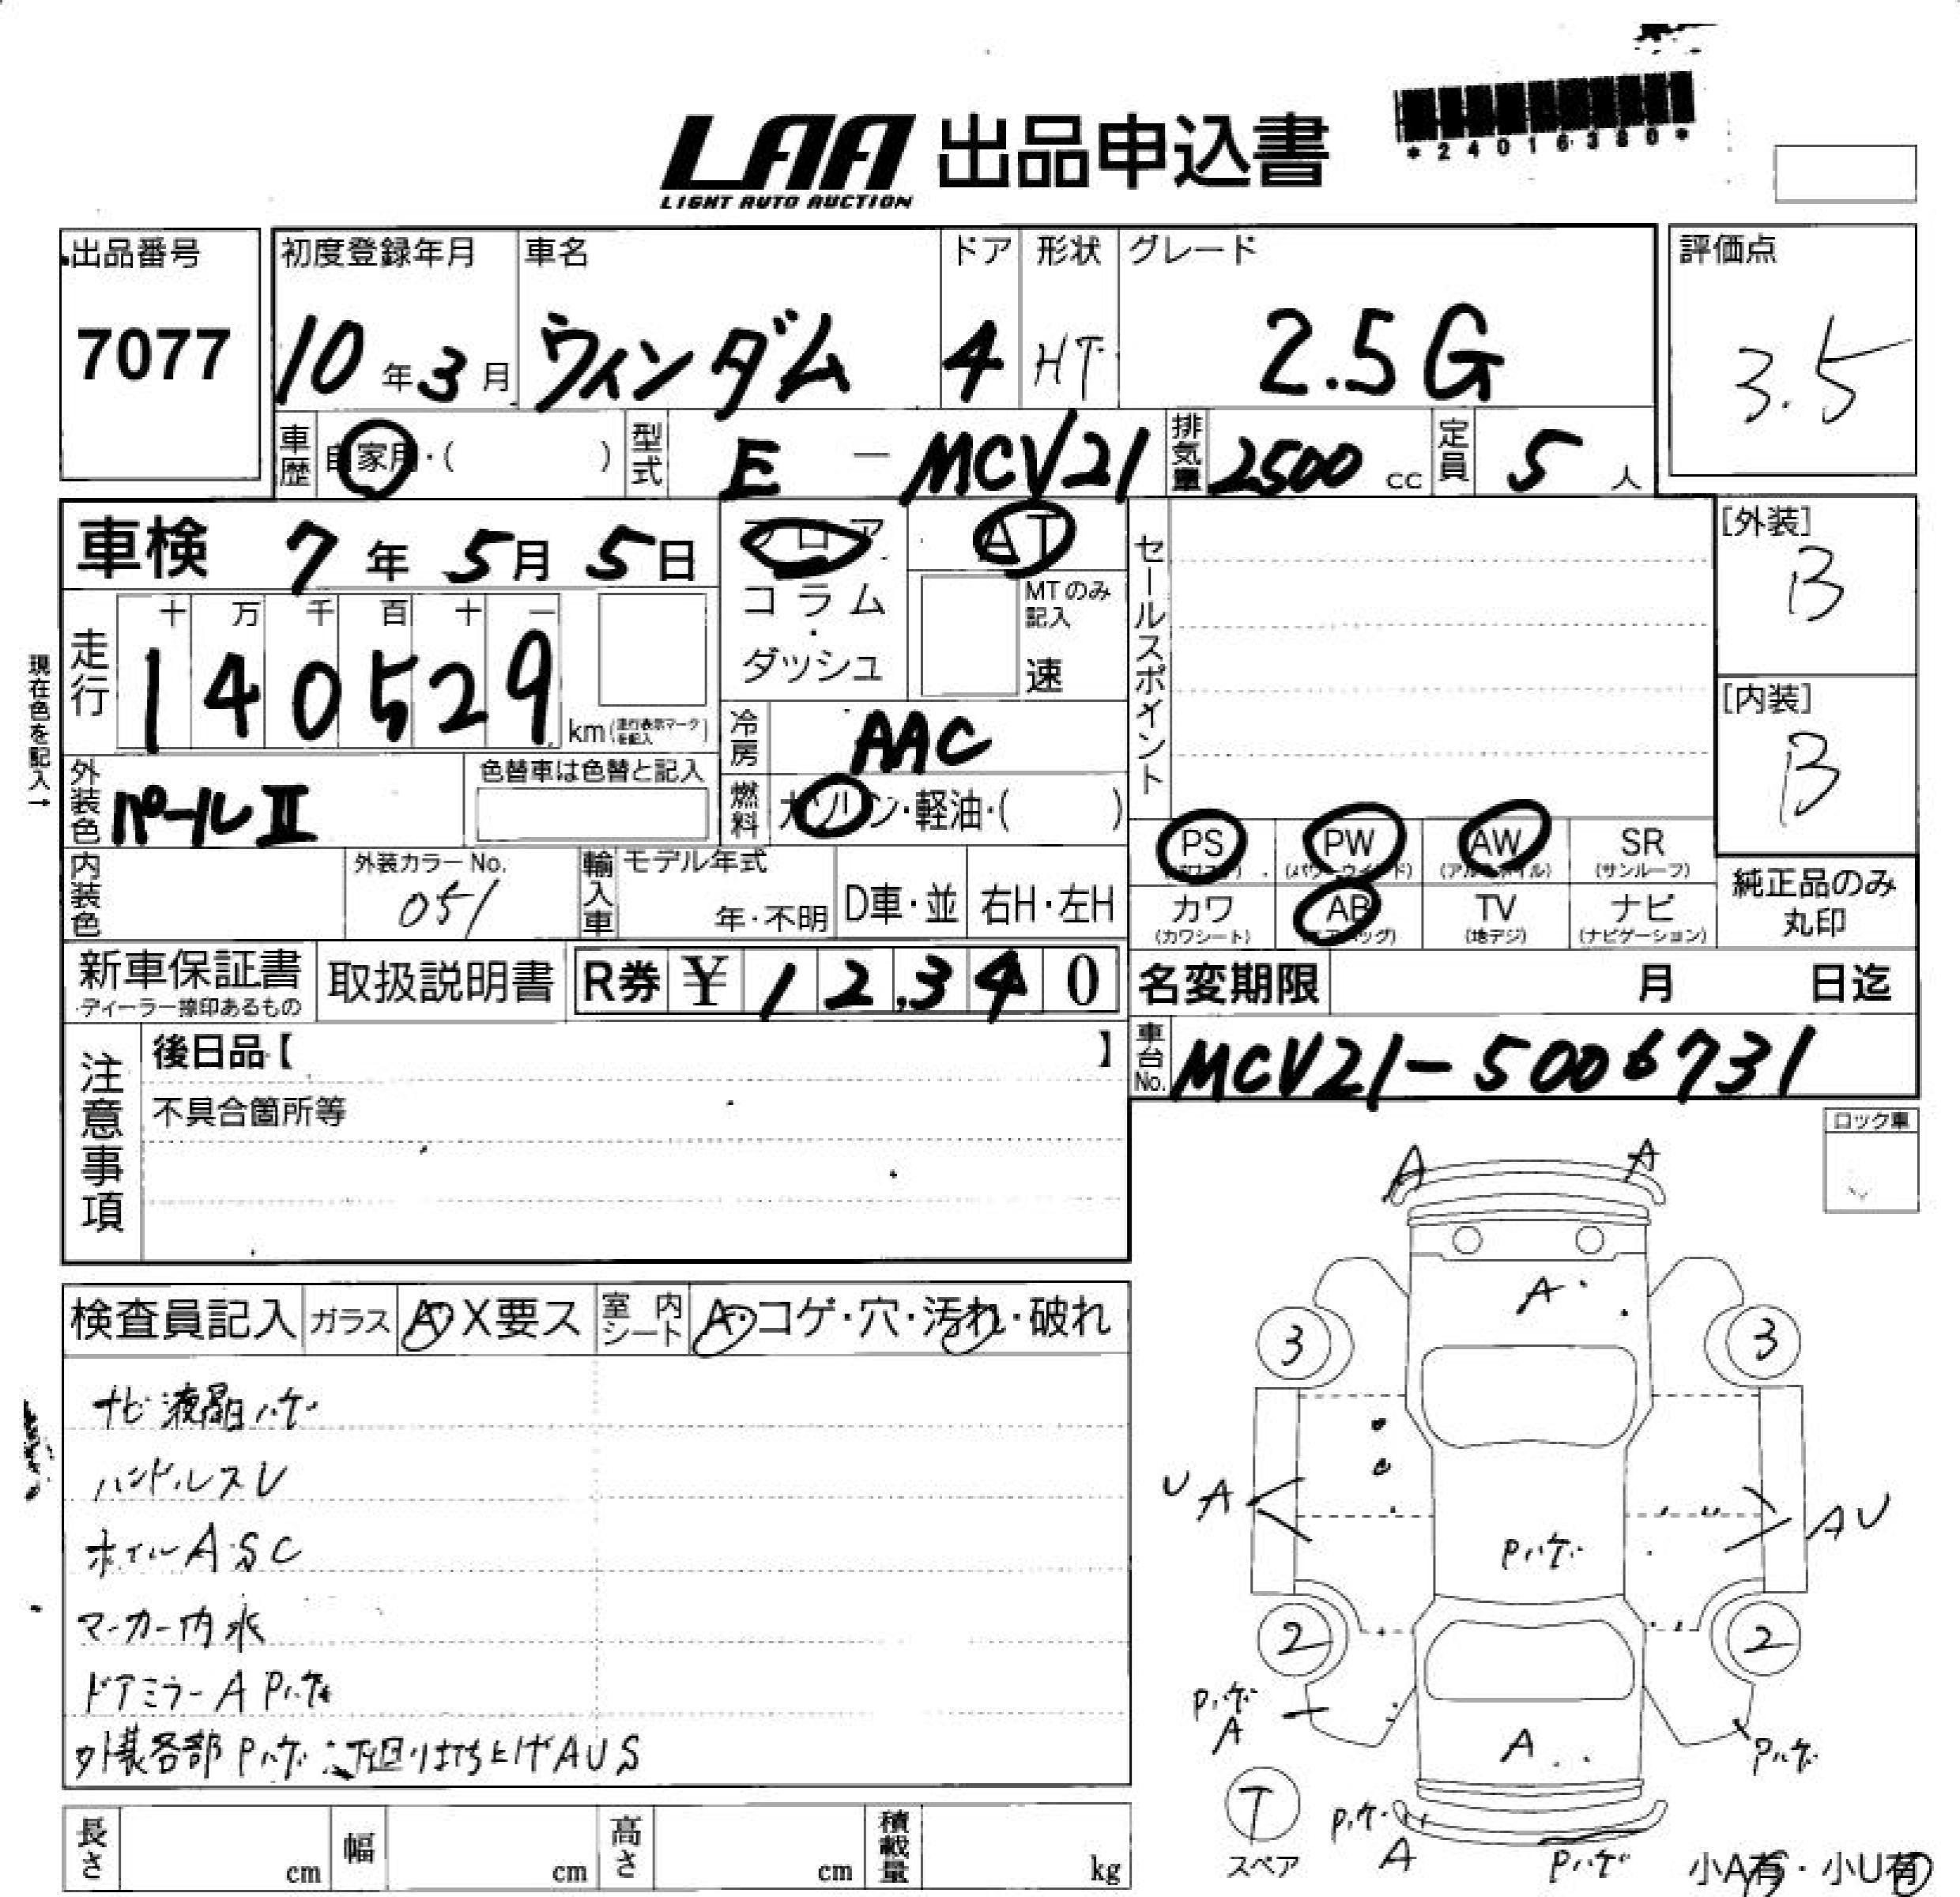 LAA 出品申込書
LIGHT AUTO AUCTION
*24016380*
出品番号
7077
初度登録年月
10年3月
車名
ウィンダム
ドア
4
形状
HT
グレード
2.5G
評価点
3.5
車歴 自家用・( )
型式 E — MCV21
排気量 2500 cc
定員 5 人
車検 7年5月5日
フロア
コラム
・
ダッシュ
AT
MTのみ記入
速
セールスポイント
[外装]
B
[内装]
B
現在色を記入→
走行
十 万 千 百 十 一
140529 km(走行表示マークを記入)
冷房 AAC
外装色 パールII
色替車は色替と記入
燃料 ガソリン・軽油・( )
内装色
外装カラーNo.
051
輸入車
モデル年式
年・不明
D車・並
右H・左H
PS
(パワステ)
PW
(パワーウインド)
AW
(アルミホイル)
SR
(サンルーフ)
カワ
(カワシート)
AB
(エアバッグ)
TV
(地デジ)
ナビ
(ナビゲーション)
純正品のみ
丸印
新車保証書
・ディーラー捺印あるもの
取扱説明書
R券 ¥ 12,340
名変期限 月 日迄
車台No. MCV21-5006731
注意事項
後日品【 】
不具合箇所等
ロック車
検査員記入
ガラス A・X要ス
室内シート A・コゲ・穴・汚れ・破れ
ナビ液晶ハゲ
ハンドルスレ
ホイルASC
マーカー内水
ドアミラーA Pハゲ
外装各部Pハゲ 下回り打ち上げAUS
A A
A
3 3
UA AU
Pハゲ
2 2
Pハゲ
A
A
Pハゲ
T
スペア
Pハゲ
A
Pハゲ
小A有・小U有
長さ cm
幅 cm
高さ cm
積載量 kg